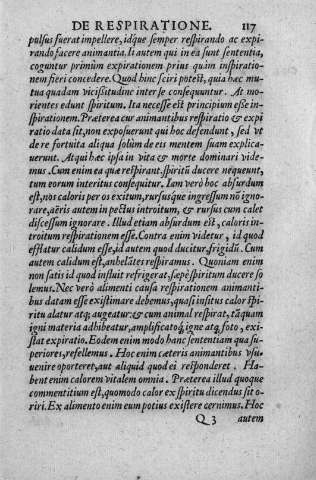 DE RESPIRATIONE. 117
pulsus fuerat impellere, idque semper respirando ac expi-
rando facere animantia. Ii autem qui in ea sunt sententia,
coguntur primùm expirationem prius quàm inspiratio-
nem fieri concedere. Quod hinc sciri potest, quia hæc mu-
tua quadam vicissitudine inter se consequuntur. At mo-
rientes edunt spiritum. Ita necesse est principium esse in-
spirationem. Præterea cur animantibus respiratio & expi
ratio data sit, non exposuerunt qui hoc defendunt, sed vt
de re fortuita aliqua solùm de eis mentem suam explica-
uerunt. At qui hæc ipsa in vita & morte dominari vide-
mus. Cum enim ea quæ respirant, spiritū ducere nequeunt,
tum eorum interitus consequitur. Iam verò hoc absurdum
est, nos caloris per os exitum, rursusque ingressum nō igno-
rare, aëris autem in pectus introitum, & rursus cum calet
discessum ignorare. Illud etiam absurdum est, caloris in-
troitum respirationem esse. Contra enim videtur, id quod
efflatur calidum esse, id autem quod ducitur, frigidū. Cum
autem calidum est, anhelātes respiramus. Quoniam enim
non satis id quod influit refrigerat, sæpè spiritum ducere so
lemus. Nec verò alimenti causa respirationem animanti-
bus datam esse existimare debemus, quasi insitus calor spi-
ritu alatur atq; augeatur: & cum animal respirat, tāquam
igni materia adhibeatur, amplificatoq; igne atq; foto, exi-
stat expiratio. Eodem enim modo hanc sententiam qua su-
periores, refellemus. Hoc enim cæteris animantibus vsu-
uenire oporteret, aut aliquid quod ei responderet. Ha-
bent enim calorem vitalem omnia. Præterea illud quoque
commentitium est, quomodo calor ex spiritu dicendus sit o-
riri. Ex alimento enim eum potius existere cernimus. Hoc
Q 3 autem